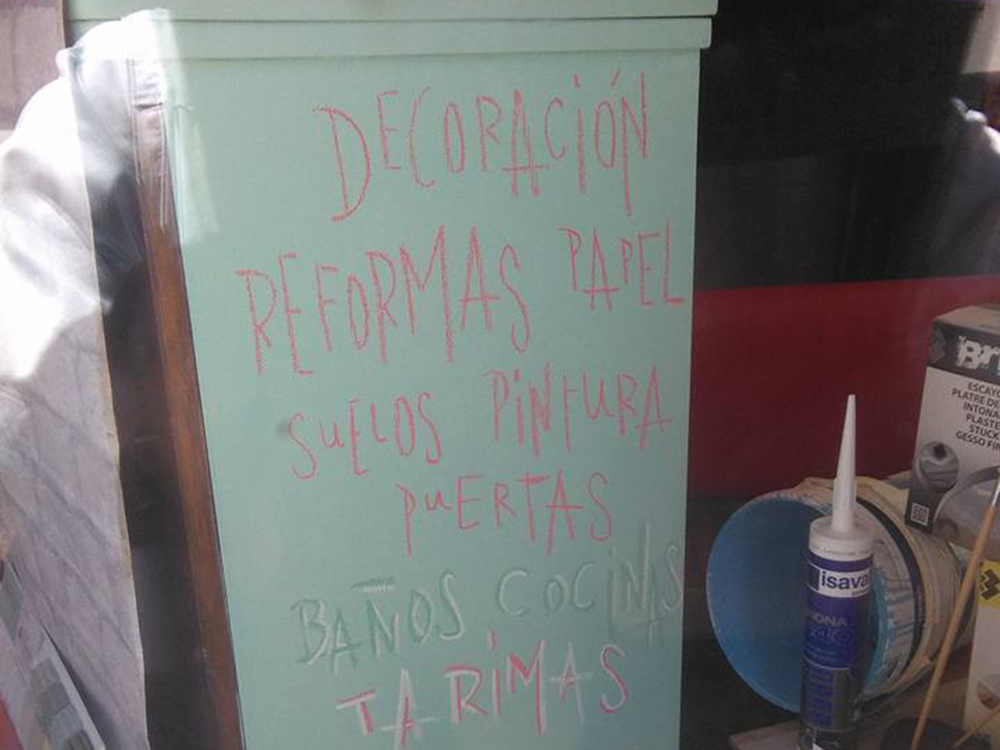 DECORACIÓN
REFORMAS PAPEL
SUELOS PINTURA
PUERTAS
BAÑOS COCINAS
TARIMAS
isava
ESCAYO
PLATRE DE
INTONA
PLASTE
STUCK
GESSO FI